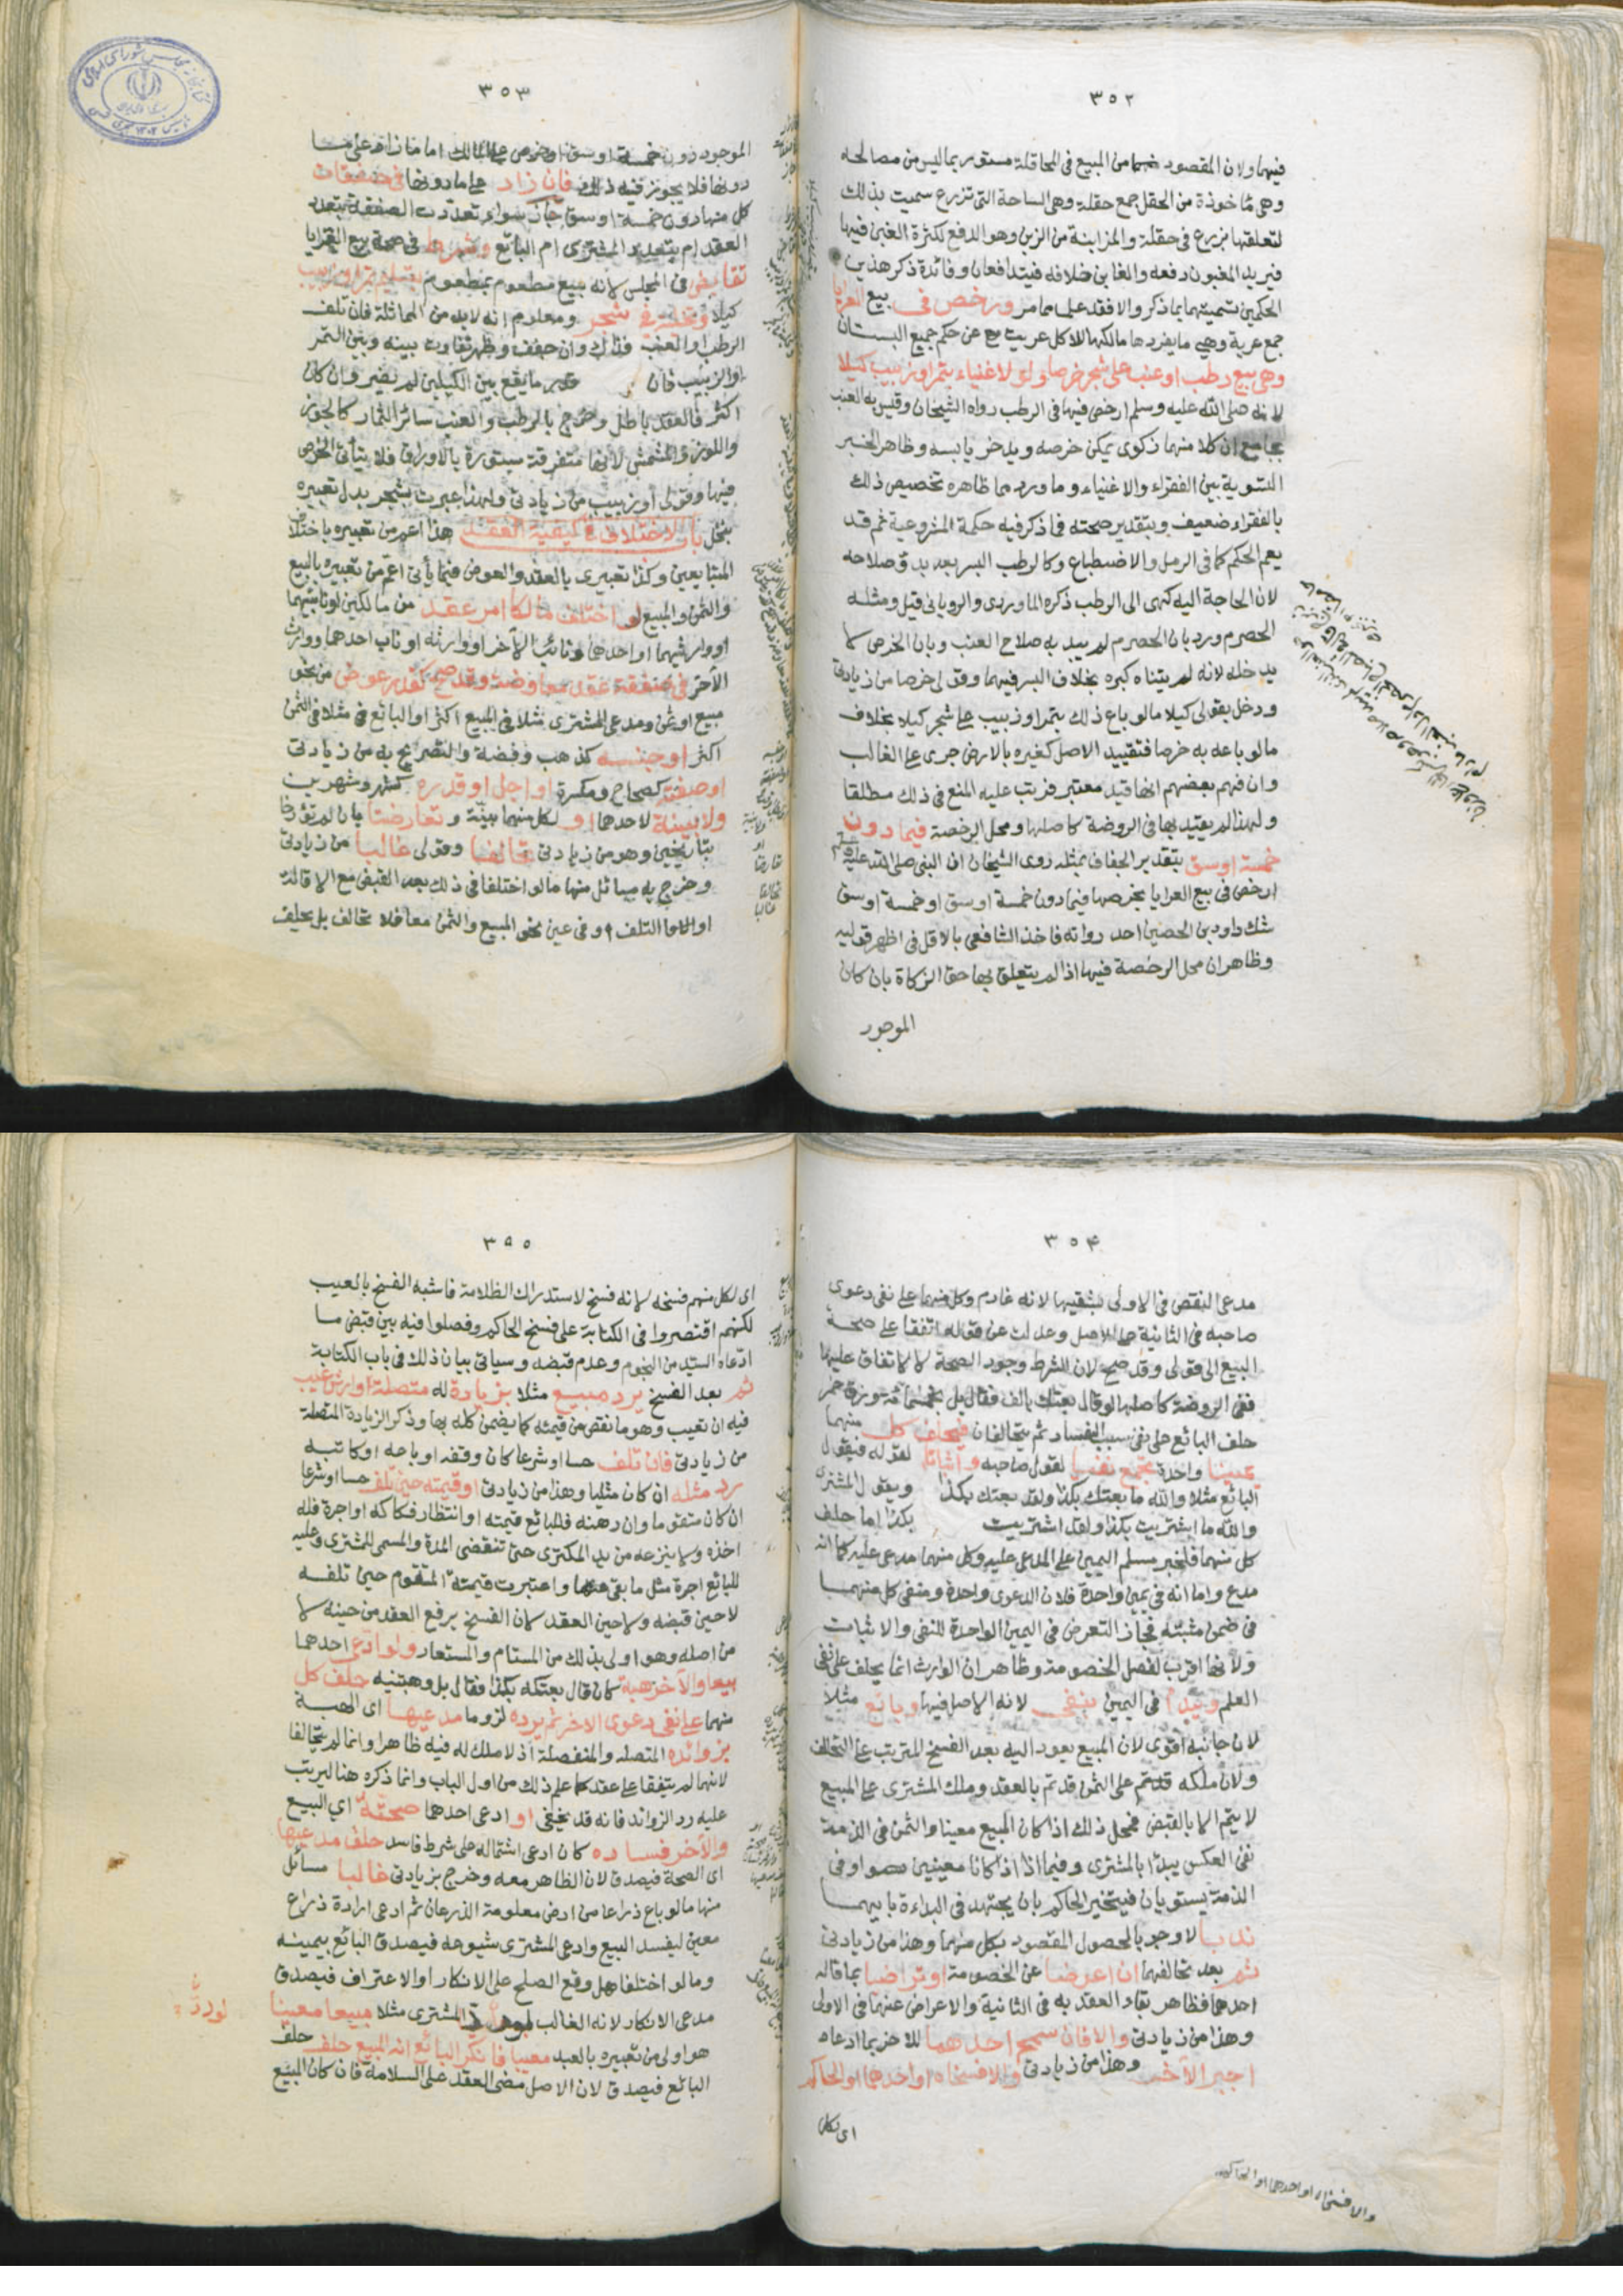 ٣٥٢
فيهما ولان المقصود من المبيع في المحاقلة مستور بما ليس من مصالحه
وهي مأخوذة من الحقل جمع حقلة وهي الساحة التي تزرع سميت بذلك
لتعلقها بزرع في حقلة والمزابنة من الزبن وهو الدفع لكثرة الغبن فيها
فيريد المغبون دفعه والغابن خلافه فيتدافعان وفائدة ذكر هذين
الحكمين تسميتهما بما ذكر والا فقد علما مما مر ورخص في بيع العرايا
جمع عرية وهي ما يفردها مالكها للاكل عريت عن حكم جميع البستان
وهي بيع رطب او عنب على شجر خرصا ولو لاغنياء بتمر او زبيب كيلا
لانه صلى الله عليه وسلم ارخص فيها في الرطب رواه الشيخان وقيس به العنب
بجامع ان كلا منهما زكوى يمكن خرصه ويدخر يابسه وظاهر الخبر
التسوية بين الفقراء والاغنياء وما ورد مما ظاهره تخصيص ذلك
بالفقراء ضعيف وبتقدير صحته فما ذكر فيه حكمة المشروعية ثم قد
يعم الحكم كما في الرمل والاضطباع وكالرطب البسر بعد بدو صلاحه
لان الحاجة اليه كهى الى الرطب ذكره الماوردى والرويانى قيل ومثله
الحصرم ورد بان الحصرم لم يبد به صلاح العنب وبان الخرص لا
يدخله لانه لم يتناه كبره بخلاف البسر فيهما وقولى خرصا من زيادتى
ودخل بقولى كيلا مالو باع ذلك بتمر او زبيب على شجر كيلا بخلاف
مالو باعه به خرصا فتقييد الاصل كغيره بالارض جرى على الغالب
وان فهم بعضهم انها قيد معتبر فرتب عليه المنع في ذلك مطلقا
ولهذا لم يقيد بها في الروضة كاصلها ومحل الرخصة فيما دون
خمسة اوسق بتقدير الجفاف بمثله روى الشيخان ان النبى صلى الله عليه وسلم
ارخص في بيع العرايا بخرصها فيما دون خمسة اوسق او خمسة اوسق
شك داود بن الحصين احد رواته فاخذ الشافعى بالاقل في اظهر قوليه
وظاهر ان محل الرخصة فيها اذا لم يتعلق بها حق الزكاة بان كان
الموجود
٣٥٣
الموجود دون خمسة اوسق او خرص على المالك اما ما زاد على ما
دونها فلا يجوز فيه ذلك فان زاد على ما دونها في صفقات
كل منها دون خمسة اوسق جاز سواء تعددت الصفقة بتعدد
العقد ام بتعدد المشترى ام البائع وشرط في صحة بيع العرايا
تقابض في المجلس لانه بيع مطعوم بمطعوم بتسليم تمر او زبيب
كيلا وتخلية في شجر ومعلوم انه لابد من المماثلة فان تلف
الرطب او العنب فذاك وان جفف وظهر تفاوت بينه وبين التمر
او الزبيب فان كان قدر ما يقع بين الكيلين لم يضر وان كان
اكثر فالعقد باطل وخرج بالرطب والعنب سائر الثمار كالجوز
واللوز والمشمش لانها متفرقة مستورة بالاوراق فلا يتأتى الخرص
فيها وقولى او زبيب من زيادتى ولهذا عبرت بشجر بدل تعبيره
بنخل باب الاختلاف في كيفية العقد هذا اعم من تعبيره باختلاف
المتبايعين وكذا تعبيرى بالعقد والعوض فيما يأتى اعم من تعبيره بالبيع
والثمن والمبيع لو اختلف مالكا امر عقد من مالكين او نائبيهما
او وارثيهما او احدهما ونائب الآخر او وارثه او نائب احدهما ووارث
الآخر في صفقة عقد معاوضة وقد صح كقدر عوض من نحو
مبيع او ثمن ومدعى المشترى مثلا في المبيع اكثر او البائع في مثلا في الثمن
اكثر او جنسه كذهب وفضة والتصريح به من زيادتى
او صفته كصحاح ومكسرة او اجل او قدره كشهر وشهرين
ولا بينة لاحدهما او لكل منهما بينة وتعارضتا بان لم تؤرخا
بتاريخين وهو من زيادتى تحالفا وقولى غالبا من زيادتى
وخرج به مسائل منها مالو اختلفا في ذلك بعد القبض مع الاقالة
او التلف وفي عين نحو المبيع والثمن معا فلا تحالف بل يحلف
٣٥٤
مدعى النقص في الاولى بشقيها لانه غارم وكل منهما على نفى دعوى
صاحبه في الثانية على الاصل وعدلت عن قوله اتفقا على صحة
البيع الى قولى وقد صح لان الشرط وجود الصحة لا الاتفاق عليها
ففى الروضة كاصلها لو قال بعتك بالف فقال بل بخمسمائة وزق خمر
حلف البائع على نفى سبب الفساد ثم يتحالفان فيحلف كل منهما
يمينا واحدة تجمع نفيا لقول صاحبه واثباتا لقوله فيقول
البائع مثلا والله ما بعتك بكذا ولقد بعتك بكذا ويقول المشترى
والله ما اشتريت بكذا ولقد اشتريت بكذا اما حلف
كل منهما فلخبر مسلم اليمين على المدعى عليه وكل منهما مدعى عليه كما انه
مدع واما انه في يمين واحدة فلان الدعوى واحدة ومنفى كل منهما
في ضمن مثبته فجاز التعرض في اليمين الواحدة للنفى والاثبات
ولانها اقرب لفصل الخصومة وظاهر ان الوارث انما يحلف على نفى
العلم ويبدأ في اليمين بنفى لانه الاصل فيها وبائع مثلا
لان جانبه اقوى لان المبيع يعود اليه بعد الفسخ المترتب على التحالف
ولان ملكه قد تم على الثمن قد تم بالعقد وملك المشترى على المبيع
لا يتم الا بالقبض فمحل ذلك اذا كان المبيع معينا والثمن في الذمة
ففى العكس يبدأ بالمشترى وفيما اذا كانا معينين او في
الذمة يستويان فيتخير الحاكم بان يجتهد في البداءة بايهما
ندبا لا وجوبا لحصول المقصود بكل منهما وهذا من زيادتى
ثم بعد تحالفهما ان اعرضا عن الخصومة او تراضيا بما قاله
احدهما فظاهر بقاء العقد به في الثانية والاعراض عنهما في الاولى
وهذا من زيادتى والا فان سمح احدهما للاخر بما ادعاه
اجبر الآخر وهذا من زيادتى والا فسخاه او احدهما او الحاكم
اى لكل
والا فسخاه او احدهما او الحاكم
٣٥٥
اى لكل منهم فسخه لانه فسخ لاستدراك الظلامة فاشبه الفسخ بالعيب
لكنهم اقتصروا في الكتابة على فسخ الحاكم وفصلوا فيه بين قبض ما
ادعاه السيد من النجوم وعدم قبضه وسياتى بيان ذلك في باب الكتابة
ثم بعد الفسخ يرد مبيع مثلا بزيادة له متصلة او ارش عيب
فيه ان تعيب وهو ما نقص من قيمته كما يضمن كله بها وذكر الزيادة المتصلة
من زيادتى فان تلف حسا او شرعا كان وقفه او باعه او كاتبه
رد مثله ان كان مثليا وهذا من زيادتى او قيمته حين تلف حسا او شرعا
ان كان متقوما وان رهنه فللبائع قيمته او انتظار فكاكه او اجره فله
اخذه ولا ينزعه من يد المكترى حتى تنقضى المدة والمسمى للمشترى وعليه
للبائع اجرة مثل ما بقى منها واعتبرت قيمة المتقوم حين تلفه
لا حين قبضه ولا حين العقد لان الفسخ يرفع العقد من حينه لا
من اصله وهو اولى بذلك من المستام والمستعار ولو ادعى احدهما
بيعا والآخر هبة كان قال بعتكه بكذا فقال بل وهبتنيه حلف كل
منهما على نفى دعوى الاخر ثم يرده لزوما مدعيها اى الهبة
بزوائده المتصلة والمنفصلة اذ لا ملك له فيه ظاهرا وانما لم يتحالفا
لانهما لم يتفقا على عقد كما علم ذلك من اول الباب وانما ذكره هنا ليرتب
عليه رد الزوائد فانه قد يخفى او ادعى احدهما صحته اى البيع
والآخر فساده كان ادعى اشتماله على شرط فاسد حلف مدعيها
اى الصحة فيصدق لان الظاهر معه وخرج بزيادتى غالبا مسائل
منها مالو باع ذراعا من ارض معلومة الذرعان ثم ادعى ارادة ذراع
معين ليفسد البيع وادعى المشترى شيوعه فيصدق البائع بيمينه
ومالو اختلفا هل وقع الصلح على الانكار او الاعتراف فيصدق
مدعى الانكار لانه الغالب ولو رد المشترى مثلا مبيعا معينا
لو ردّ
هو اولى من تعبيره بالعبد معيبا فانكر البائع انه المبيع حلف
البائع فيصدق لان الاصل مضى العقد على السلامة فان كان المبيع